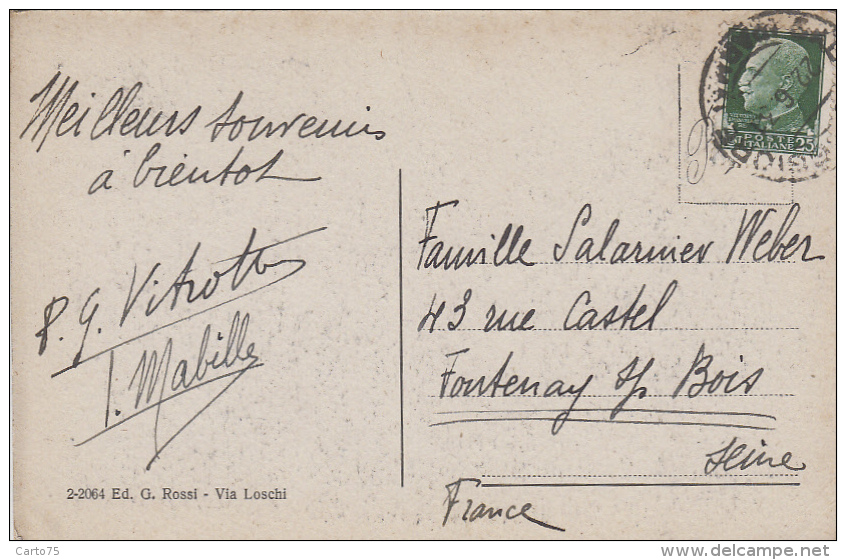 Meilleurs souvenirs
à bientot
P. G. Vitrotto
T. Mabille
2-2064 Ed. G. Rossi - Via Loschi
POSTE
ITALIANE 25
Famille Salarnier Weber
43 rue Castel
Fontenay s/s Bois
Seine
France
Carto75
www.delcampe.net